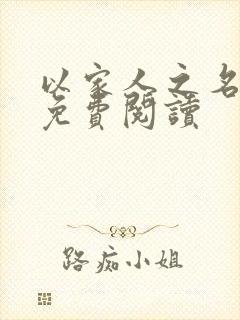 以家人之名
免費閱讀
路痴小姐